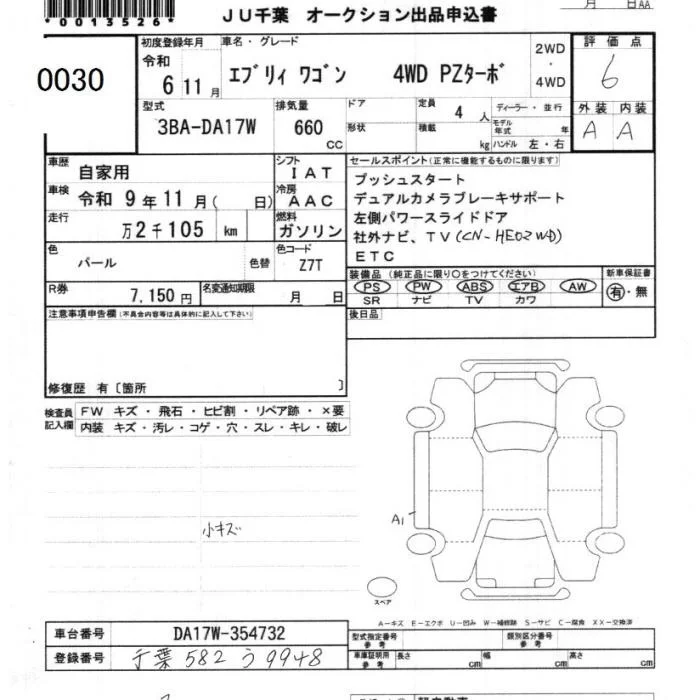 月 日AA
*0013526*
JU千葉 オークション出品申込書
0030
初度登録年月 令和 6 11 月
車名・グレード エブリィ ワゴン 4WD PZターボ
2WD・4WD
評価点 6
型式 3BA-DA17W
排気量 660 CC
ドア
形状
定員 4 人
積載 kg
ディーラー・並行
モデル年式 年
ハンドル 左・右
外装 内装
A A
車歴 自家用
シフト IAT
車検 令和 9 年 11 月( 日)
冷房 AAC
走行 万2千105 km
燃料 ガソリン
色 パール 色替
色コード Z7T
R券 7,150 円
名変通知期限 月 日
セールスポイント(正常に機能するものに限ります)
プッシュスタート
デュアルカメラブレーキサポート
左側パワースライドドア
社外ナビ、TV(CN-HE02WD)
ETC
装備品 (純正品に限り○をつけてください)
PS PW ABS エアB AW
SR ナビ TV カワ
新車保証書
有・無
後日品
注意事項申告欄(不具合内容等は具体的に記入して下さい)
修復歴 有〔箇所 〕
検査員記入欄
FW キズ・飛石・ヒビ割・リペア跡・×要
内装 キズ・汚レ・コゲ・穴・スレ・キレ・破レ
小キズ
A1
スペア
A-キズ E-エクボ U-凹み W-補修跡 S-サビ C-腐食 XX-交換済
車台番号 DA17W-354732
登録番号 千葉 582 う 9948
型式指定番号 参考
類別区分番号 参考
車庫証明用 参考 長さ cm 幅 cm 高さ cm